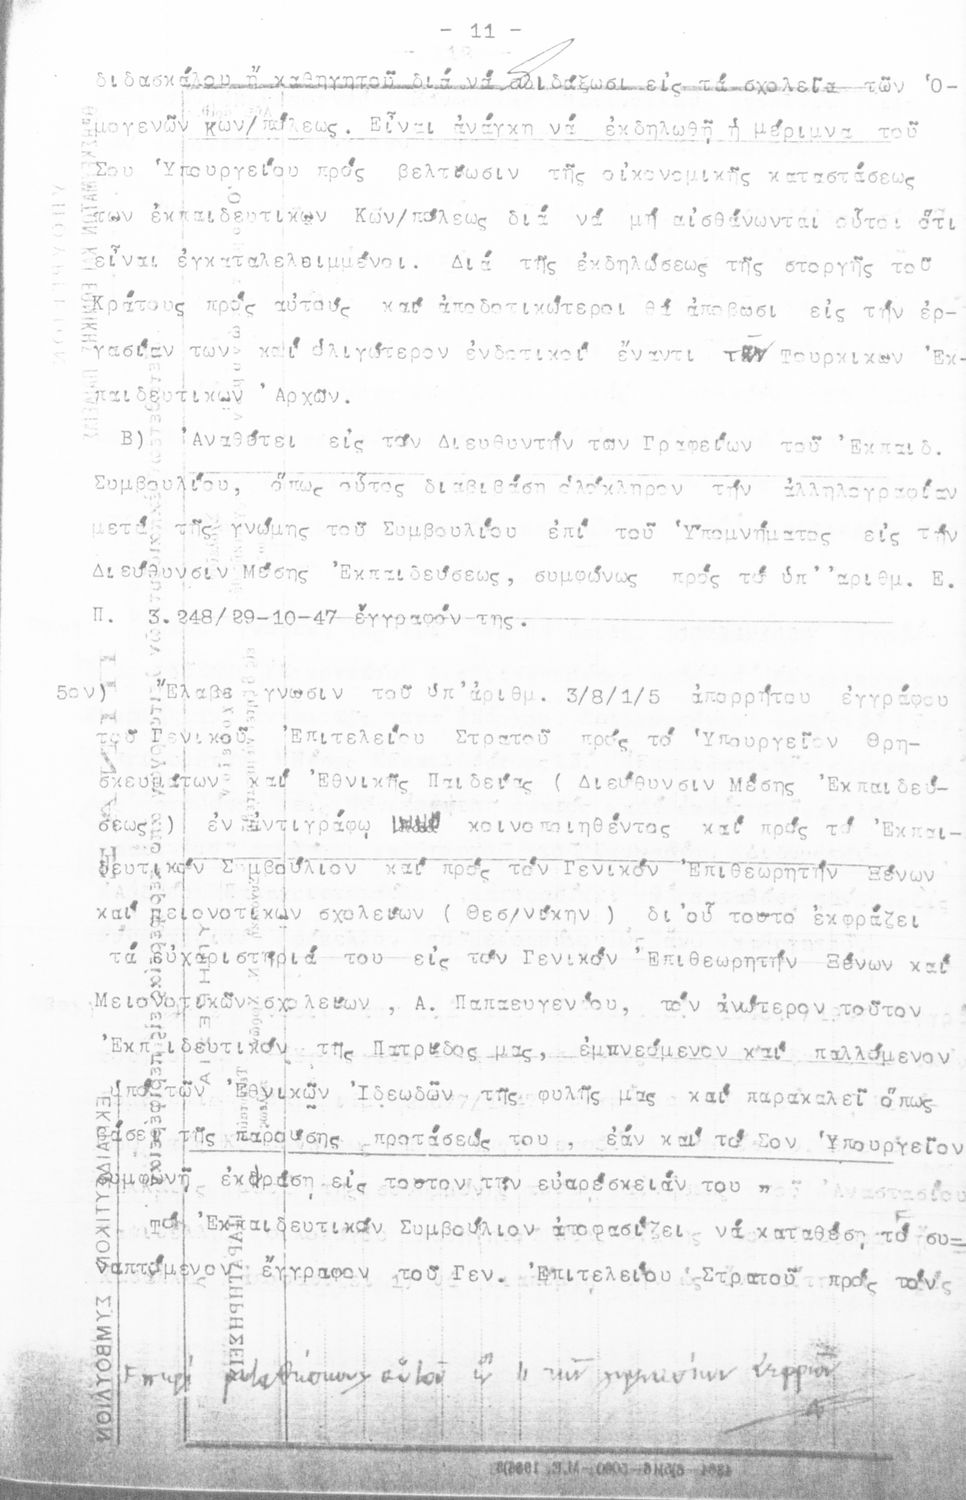 - 11 -
διδασκάλου ἤ καθηγητοῦ διά νά διδάξωσι εἰς τά σχολεῖα τῶν Ὁ-
μογενῶν Κων/πόλεως. Εἶναι ἀνάγκη νά ἐκδηλωθῇ ἡ μέριμνα τοῦ
Σου Ὑπουργείου πρός βελτίωσιν τῆς οἰκονομικῆς καταστάσεως
των ἐκπαιδευτικων Κων/πόλεως διά νά μή αἰσθάνωνται οὗτοι ὅτι
εἶναι ἐγκαταλελειμμένοι. Διά τῆς ἐκδηλώσεως τῆς στοργῆς τοῦ
Κράτους πρός αὐτούς καί ἀποδοτικώτεροι θά ἀποβωσι εἰς τήν ἐρ-
γασίαν των καί ὀλιγώτερον ἐνδοτικοί ἔναντι τῶν Τουρκικων Ἐκ-
παιδευτικων Ἀρχῶν.
Β) Ἀναθέτει εἰς τόν Διευθυντήν των Γραφείων τοῦ Ἐκπαιδ.
Συμβουλίου, ὅπως οὗτος διαβιβάση ὁλόκληρον τήν ἀλληλογραφίαν
μετά τῆς γνώμης τοῦ Συμβουλίου ἐπί τοῦ Ὑπομνήματος εἰς τήν
Διεύθυνσιν Μέσης Ἐκπαιδεύσεως, συμφώνως πρός τό ὑπ' ἀριθμ. Ε.
Π. 3.248/29-10-47 ἔγγραφόν της.
5ον) Ἔλαβε γνωσιν τοῦ ὑπ'ἀριθμ. 3/8/1/5 ἀπορρήτου ἐγγράφου
τοῦ Γενικοῦ Ἐπιτελείου Στρατοῦ πρός τό Ὑπουργεῖον Θρη-
σκευμάτων καί Ἐθνικῆς Παιδείας ( Διεύθυνσιν Μέσης Ἐκπαιδεύ-
σεως ) ἐν ἀντιγράφῳ κοινοποιηθέντος καί πρός τό Ἐκπαι-
δευτικόν Συμβούλιον καί πρός τόν Γενικόν Ἐπιθεωρητήν Ξένων
καί μειονοτικων σχολείων ( Θεσ/νίκην ) δι'οὗ τουτο ἐκφράζει
τά εὐχαριστήριά του εἰς τόν Γενικόν Ἐπιθεωρητήν Ξένων καί
Μειονοτικῶν σχολείων , Α. Παπαευγενίου, τόν ἀνώτερον τοῦτον
Ἐκπαιδευτικόν τῆς Πατρίδος μας, ἐμπνεόμενον καί παλλόμενον
ὑπό τῶν Ἐθνικῶν Ἰδεωδῶν τῆς φυλῆς μας καί παρακαλεῖ ὅπως
βάσει τῆς παρούσης προτάσεώς του , ἐάν καί τό Σον Ὑπουργεῖον
συμφωνῇ ἐκφράση εἰς τουτον την εὐαρέσκειάν του "
Τό Ἐκπαιδευτικόν Συμβούλιον ἀποφασίζει νά καταθέση τό συ-
ναπτόμενον ἔγγραφον τοῦ Γεν. Ἐπιτελείου Στρατοῦ πρός τούς
ΕΚΠΑΙΔΕΥΤΙΚΟΝ ΣΥΜΒΟΥΛΙΟΝ
ΠΑΡΑΤΗΡΗΣΕΙΣ